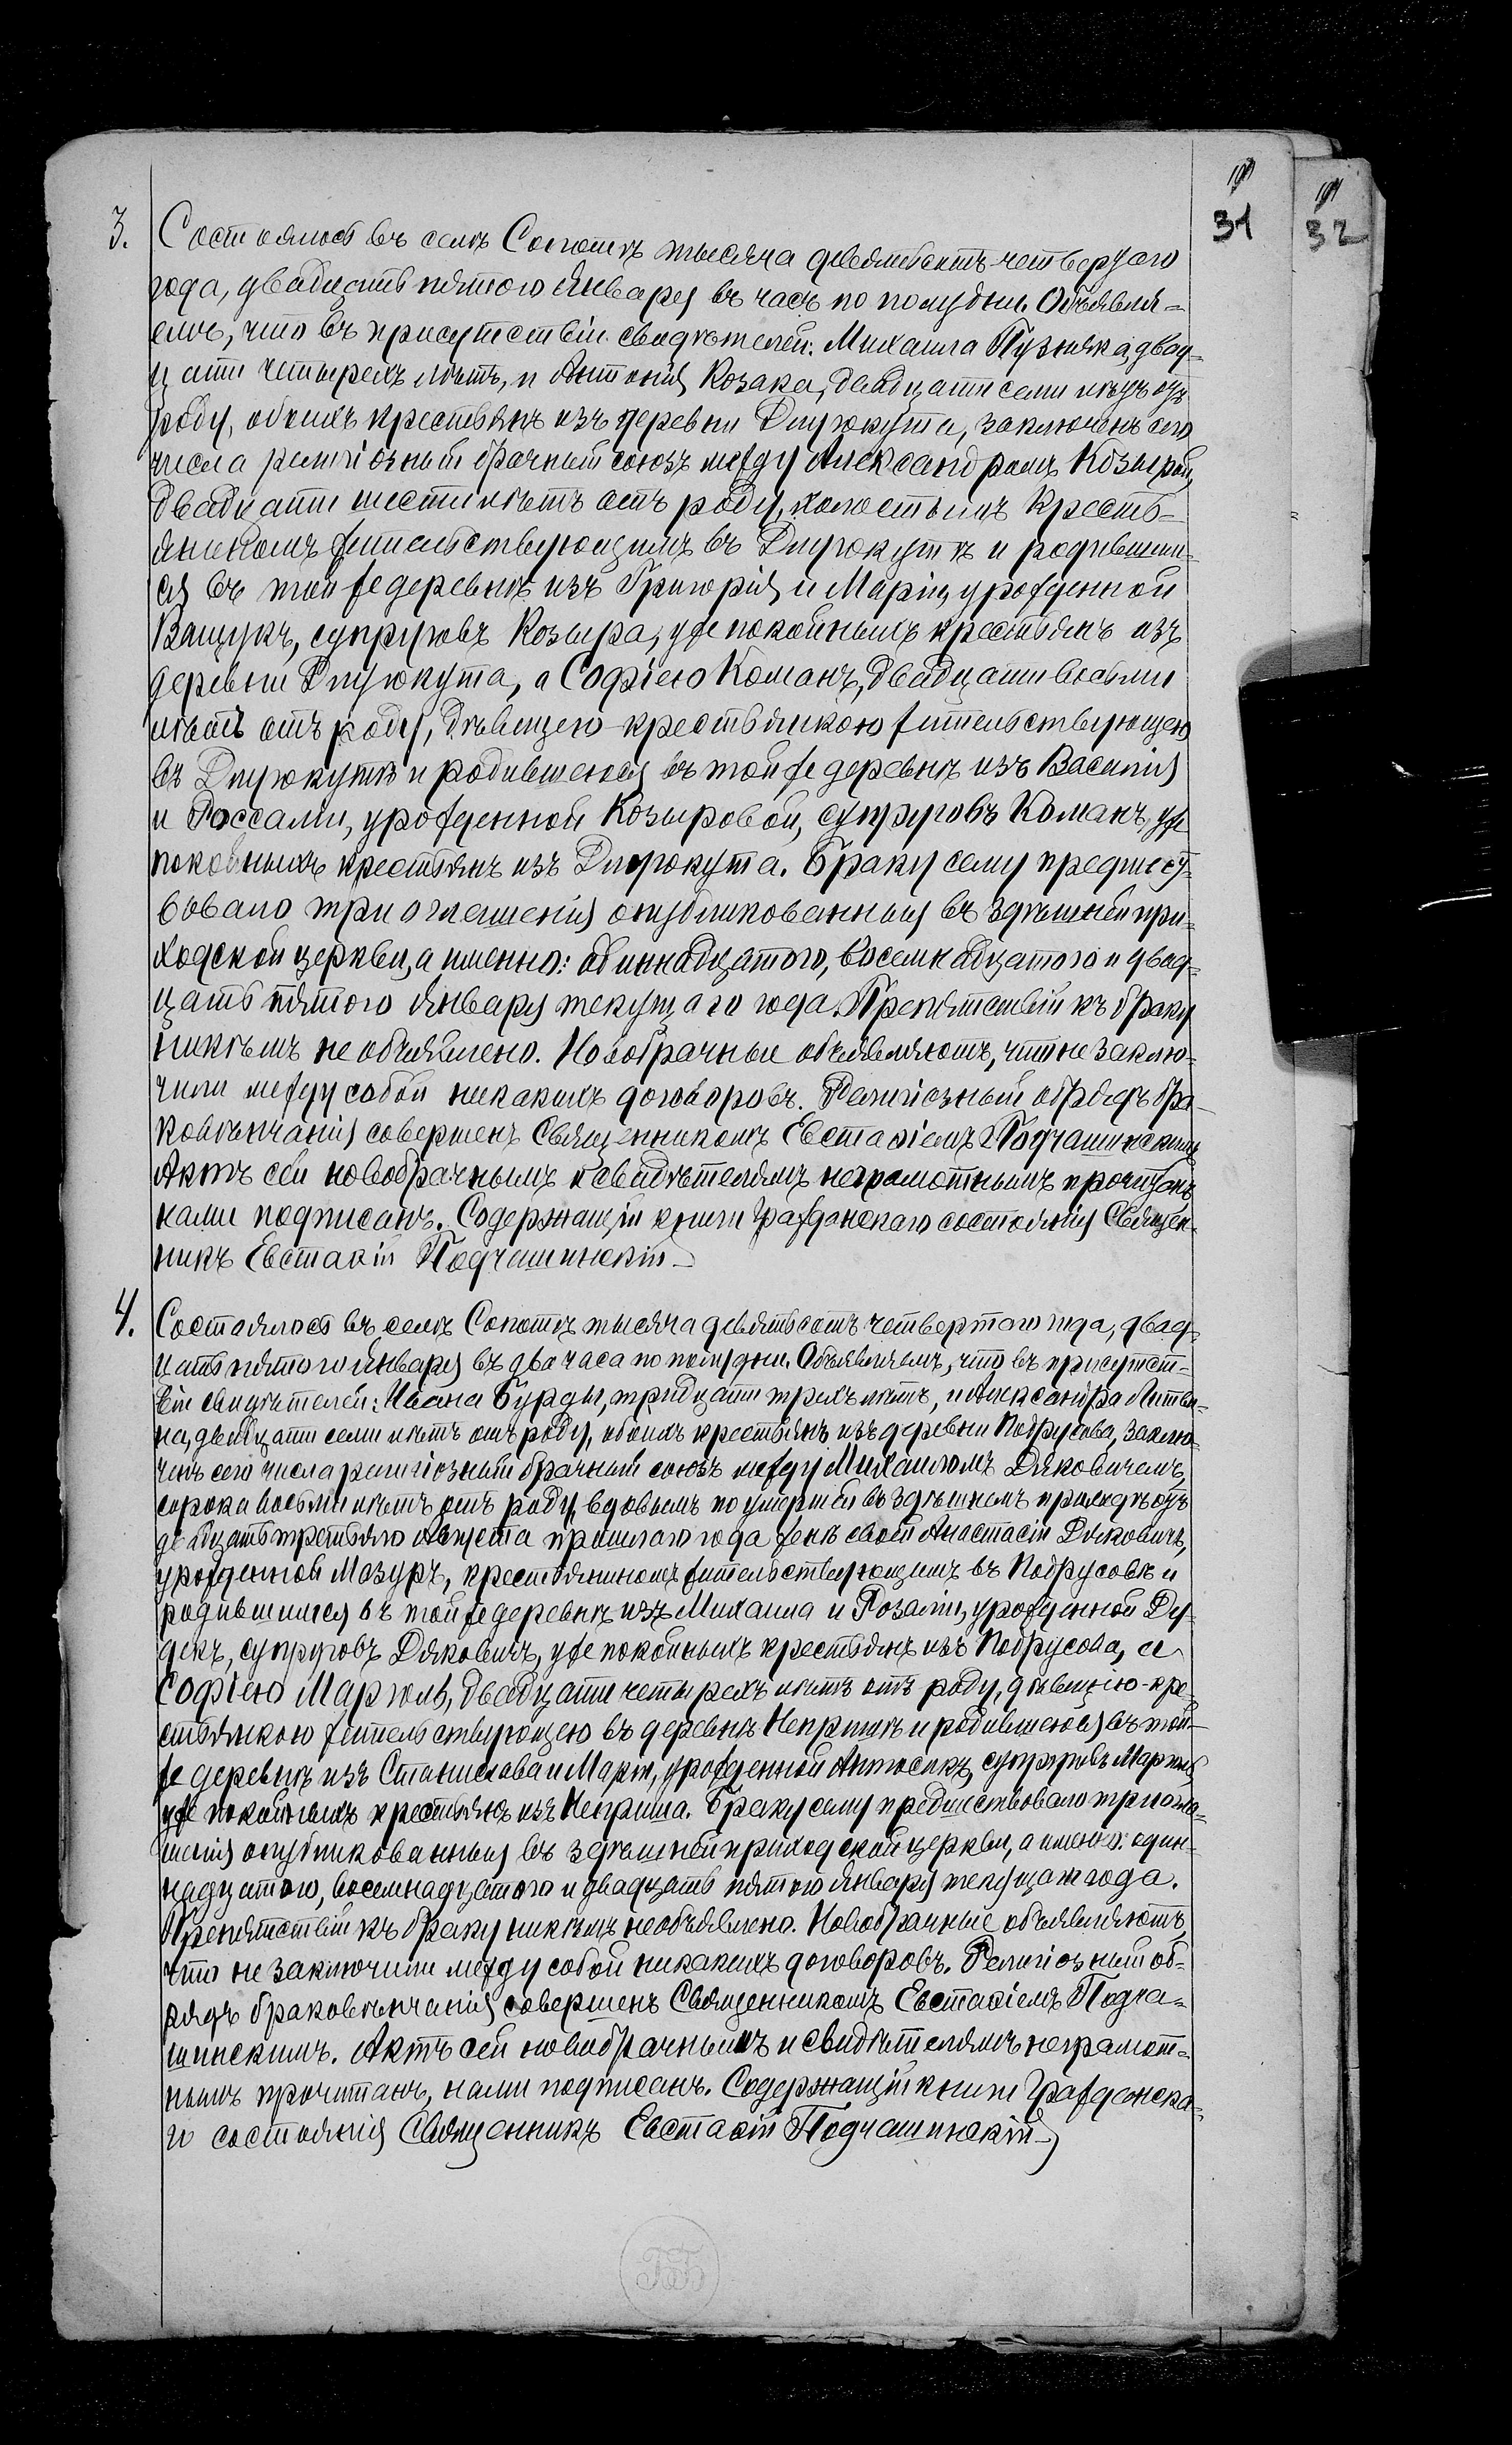 31
32
3. Состоялось въ селѣ Сопотѣ тысяча девятьсотъ четвертого
года, двадцать пятого Января въ часъ по полудни. Объявля-
емъ, что въ присутствіи свидѣтелей: Михаила Пузняка, двад-
цати четырехъ лѣтъ, и Антонія Козака, двадцати семи лѣтъ отъ
роду, обоихъ крестьянъ изъ деревни заключенъ сего
числа религіозный брачный союзъ между Александромъ Козырой,
двадцати шести лѣтъ отъ роду, холостымъ кресть-
яниномъ жительствующимъ въ и родившим-
ся въ той же деревнѣ изъ Григорія и Маріи, урожденной
Ващукъ, супруговъ Козыра, уже покойныхъ крестьянъ изъ
деревни а Софіею Команъ, двадцати восьми
лѣтъ отъ роду, дѣвицею-крестьянкою жительствующею
въ и родившеюся въ той же деревнѣ изъ Василія
и урожденной Козыровой, супруговъ Команъ, уже
покойныхъ крестьянъ изъ Браку сему предшест-
вовало три оглашенія опубликованныя въ здѣшней при-
ходской церкви, а именно: одиннадцатого, восемнадцатого и двад-
цать пятого Января текущаго года. Препятствій къ браку
никѣмъ не объявлено. Новобрачные объявляютъ, что не заклю-
чили между собой никакихъ договоровъ. Религіозный обрядъ бра-
ковѣнчанія совершенъ Священникомъ Евстафіемъ Подчашинскимъ
Актъ сей новобрачнымъ и свидѣтелямъ неграмотнымъ прочитанъ
нами подписанъ. Содержащій книги гражданскаго состоянія Священ-
никъ Евстафій Подчашинскій
4. Состоялось въ селѣ Сопотѣ тысяча девятьсотъ четвертого года, двад-
цать пятого Января въ два часа по полудни. Объявляемъ, что въ присутст-
віи свидѣтелей: Ивана Бурды, тридцати трехъ лѣтъ, и Александра Литви-
на, двадцати семи лѣтъ отъ роду, обоихъ крестьянъ изъ деревни Подрусова, заклю-
ченъ сего числа религіозный брачный союзъ между Михаиломъ Дяковичемъ,
сорока восьми лѣтъ отъ роду, вдовымъ по умершей въ здѣшнемъ приходѣ отъ
двадцать третьяго Августа прошлаго года женѣ своей Анастасіи Дяковичъ,
урожденной Мазуръ, крестьяниномъ жительствующимъ въ Подрусовѣ и
родившимся въ той же деревнѣ изъ Михаила и Розаліи, урожденной Ду-
декъ, супруговъ Дяковичъ, уже покойныхъ крестьянъ изъ Подрусова, а
Софіею Марголь, двадцати четырехъ лѣтъ отъ роду, дѣвицею-кре-
стьянкою жительствующею въ деревнѣ Непришѣ и родившеюся въ той-
же деревнѣ изъ Станислава и Маріи, урожденной Антосикъ, супруговъ Марголь
уже покойныхъ крестьянъ изъ Неприша. Браку сему предшествовало три огла-
шенія опубликованныя въ здѣшней приходской церкви, а именно: один-
надцатого, восемнадцатого и двадцать пятого Января текущаго года.
Препятствій къ браку никѣмъ не объявлено. Новобрачные объявляютъ,
что не заключили между собой никакихъ договоровъ. Религіозный об-
рядъ браковѣнчанія совершенъ Священникомъ Евстафіемъ Подча-
шинскимъ. Актъ сей новобрачнымъ и свидѣтелямъ неграмот-
нымъ прочитанъ, нами подписанъ. Содержащій книги гражданска-
го состоянія Священникъ Евстафій Подчашинскій